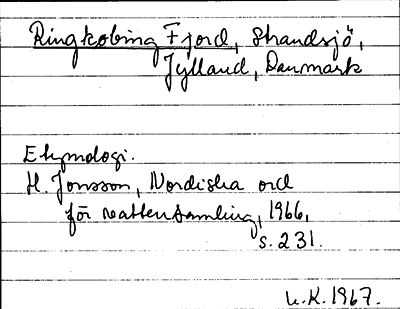 Ringkobing Fjord, strandsjö,
Jylland, Danmark
Etymologi.
H. Jonsson, Nordiska ord
för vattensamling, 1966,
s. 231.
L.K. 1967.